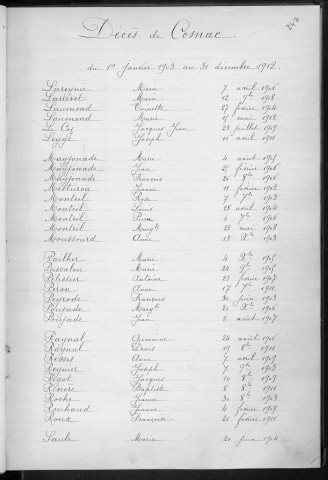 247
Décès de Cosnac
du 1er Janvier 1903 au 31 décembre 1912.
Lareynie Marie 7 avril 1906
Lautret Marie 12 9bre 1908
Laumond Toinette 27 février 1904
Laumond Marie 15 mai 1912
Le Coz Jacques Jean 23 juillet 1909
Leyge Joseph 10 avril 1911
Mayjonade Marie 4 aout 1905
Mayjonade Jean 25 février 1906
Mayjonade François 20 8bre 1906
Jeanne 11 février 1912
Monteil Rose 7 7bre 1903
Monteil Louis 28 avril 1904
Monteil 6 7bre 1906
Monteil Margte 22 mai 1908
Moussourd Anne 13 Xbre 1903
Pailher Marie 4 Xbre 1905
Pascalou Marie 24 9bre 1905
Pélissier Antoine 23 février 1907
Peron Anne 17 7bre 1911
Peyrode François 30 juin 1903
Margte 20 Xbre 1906
Jean 5 avril 1907
Raynal Germaine 24 août 1906
Raynal Denis 19 8bre 1911
Anne 7 avril 1909
Reynier Joseph 7 9bre 1903
Rigot Jacques 10 8bre 1909
Baptiste 8 8bre 1911
Roche Jeanne 30 8bre 1903
Rouhaud Jeanne 4 février 1909
Roux Françoise 21 février 1911
Saule Marie 20 juin 1904